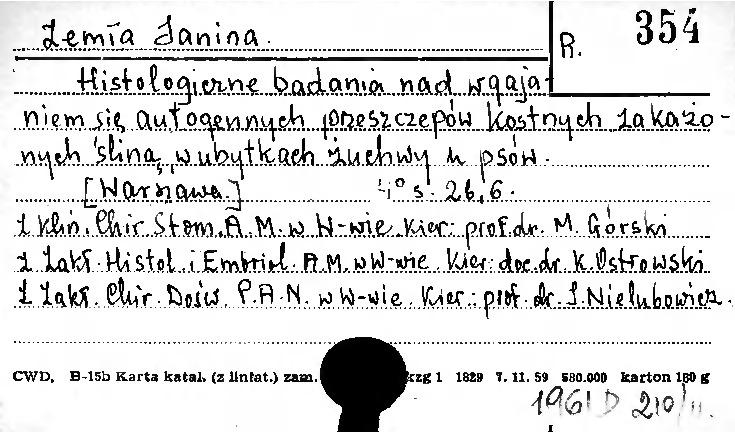 Zemła Janina.
R. 354
Histologiczne badania nad wgaja-
niem się autogennych przeszczepów kostnych zakażo-
nych śliną, w ubytkach żuchwy u psów.
[Warszawa.] 4° s. 26,6.
Z Klin. Chir. Stom. A.M. w W-wie. Kier: prof. dr. M. Górski
Z Zakł. Histol. i Embriol. A.M. w W-wie. Kier: doc. dr. K. Ostrowski
Z Zakł. Chir. Dośw. P.A.N. w W-wie. Kier: prof. dr. J. Nielubowicz.
CWD, B-15b Karta katal. (z liniat.) zam. kzg 1 1829 7. 11. 59 580.000 karton 180 g
1961 D 210/11.